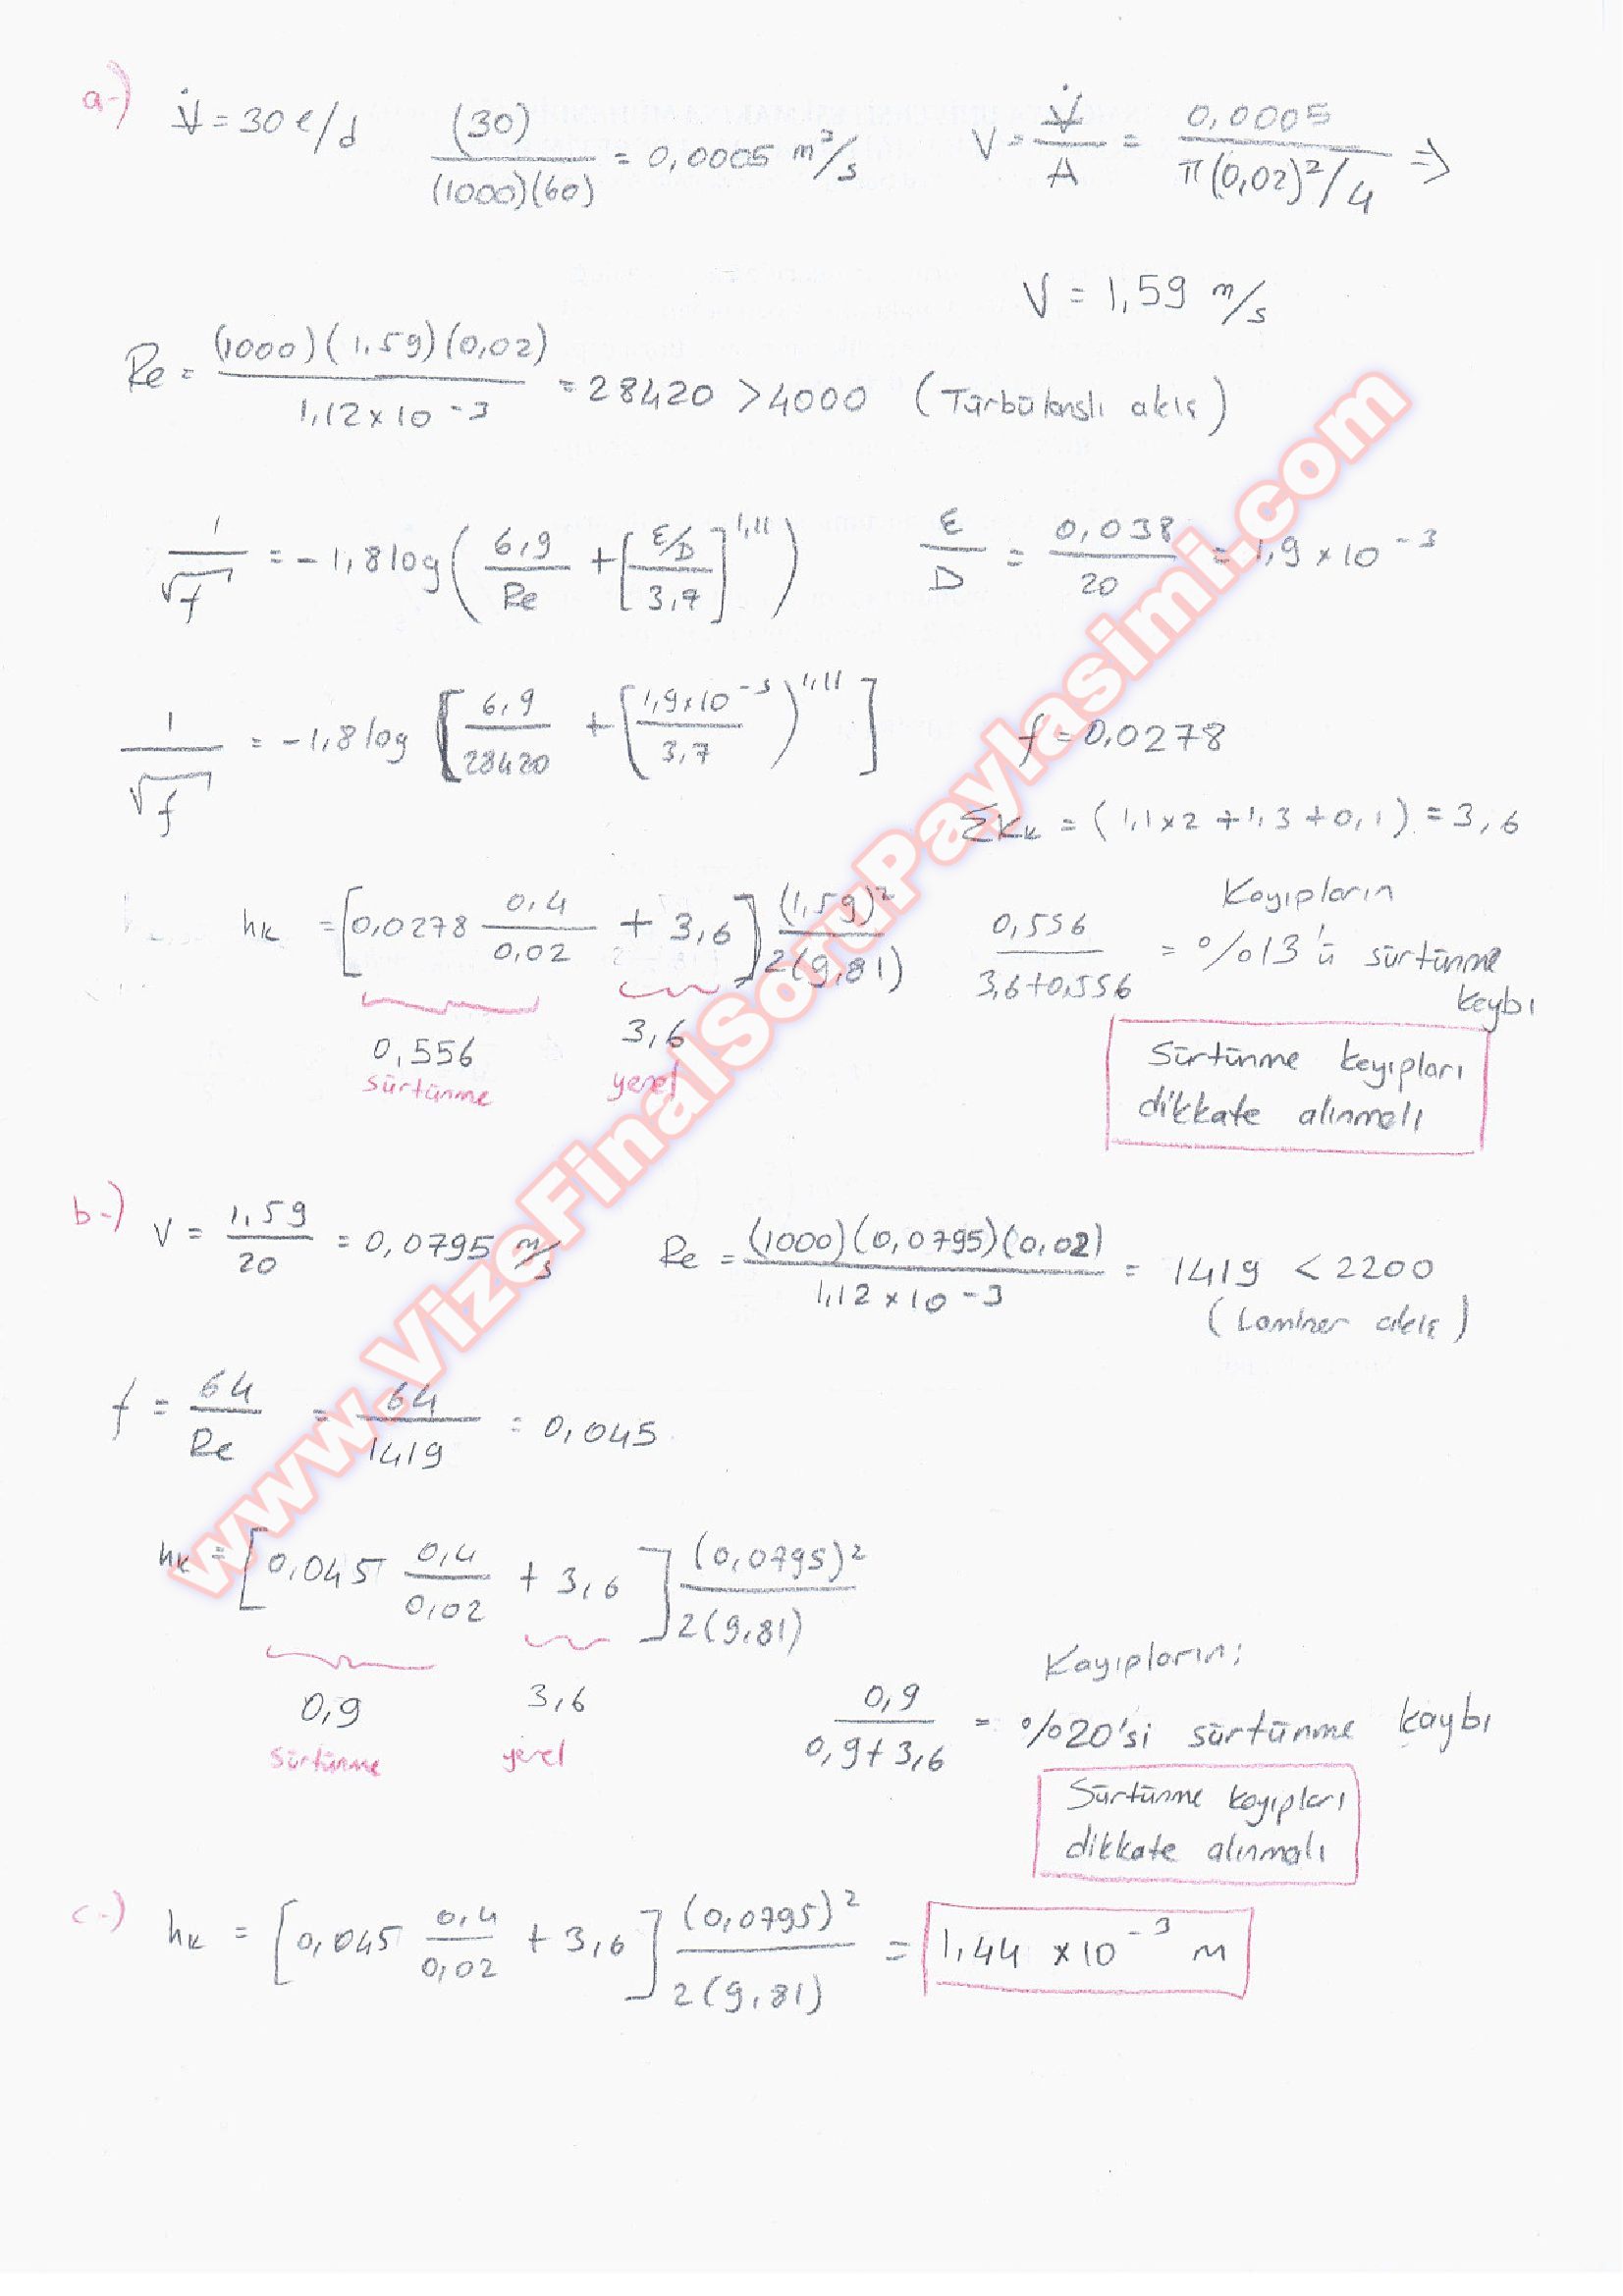 a-) V̇ = 30 ℓ/d (30)/(1000)(60) = 0,0005 m³/s V = V̇/A = 0,0005/π(0,02)²/4 ⇒
V = 1,59 m/s
Re = (1000)(1,59)(0,02)/1,12x10⁻³ = 28420 > 4000 (Türbülanslı akış)
1/√f = -1,8 log(6,9/Re + [ε/D/3,7]^1,11) ε/D = 0,038/20 = 1,9 x 10⁻³
1/√f = -1,8 log[6,9/28420 + (1,9x10⁻³/3,7)^1,11] f = 0,0278
ΣKk = (1,1x2 + 1,3 + 0,1) = 3,6
hk = [0,0278 0,4/0,02 + 3,6] (1,59)²/2(9,81) 0,556/3,6+0,556 = %13'ü sürtünme kaybı
Kayıpların
0,556 3,6
sürtünme yerel
Sürtünme kayıpları
dikkate alınmalı
b-) V = 1,59/20 = 0,0795 m/s Re = (1000)(0,0795)(0,02)/1,12 x 10⁻³ = 1419 < 2200
(Laminer akış)
f = 64/Re = 64/1419 = 0,045
hk = [0,045 0,4/0,02 + 3,6] (0,0795)²/2(9,81)
Kayıpların;
0,9 3,6 0,9/0,9+3,6 = %20'si sürtünme kaybı
sürtünme yerel
Sürtünme kayıpları
dikkate alınmalı
c-) hk = [0,045 0,4/0,02 + 3,6] (0,0795)²/2(9,81) = 1,44 x10⁻³ m
www.VizeFinalSoruPaylasimi.com